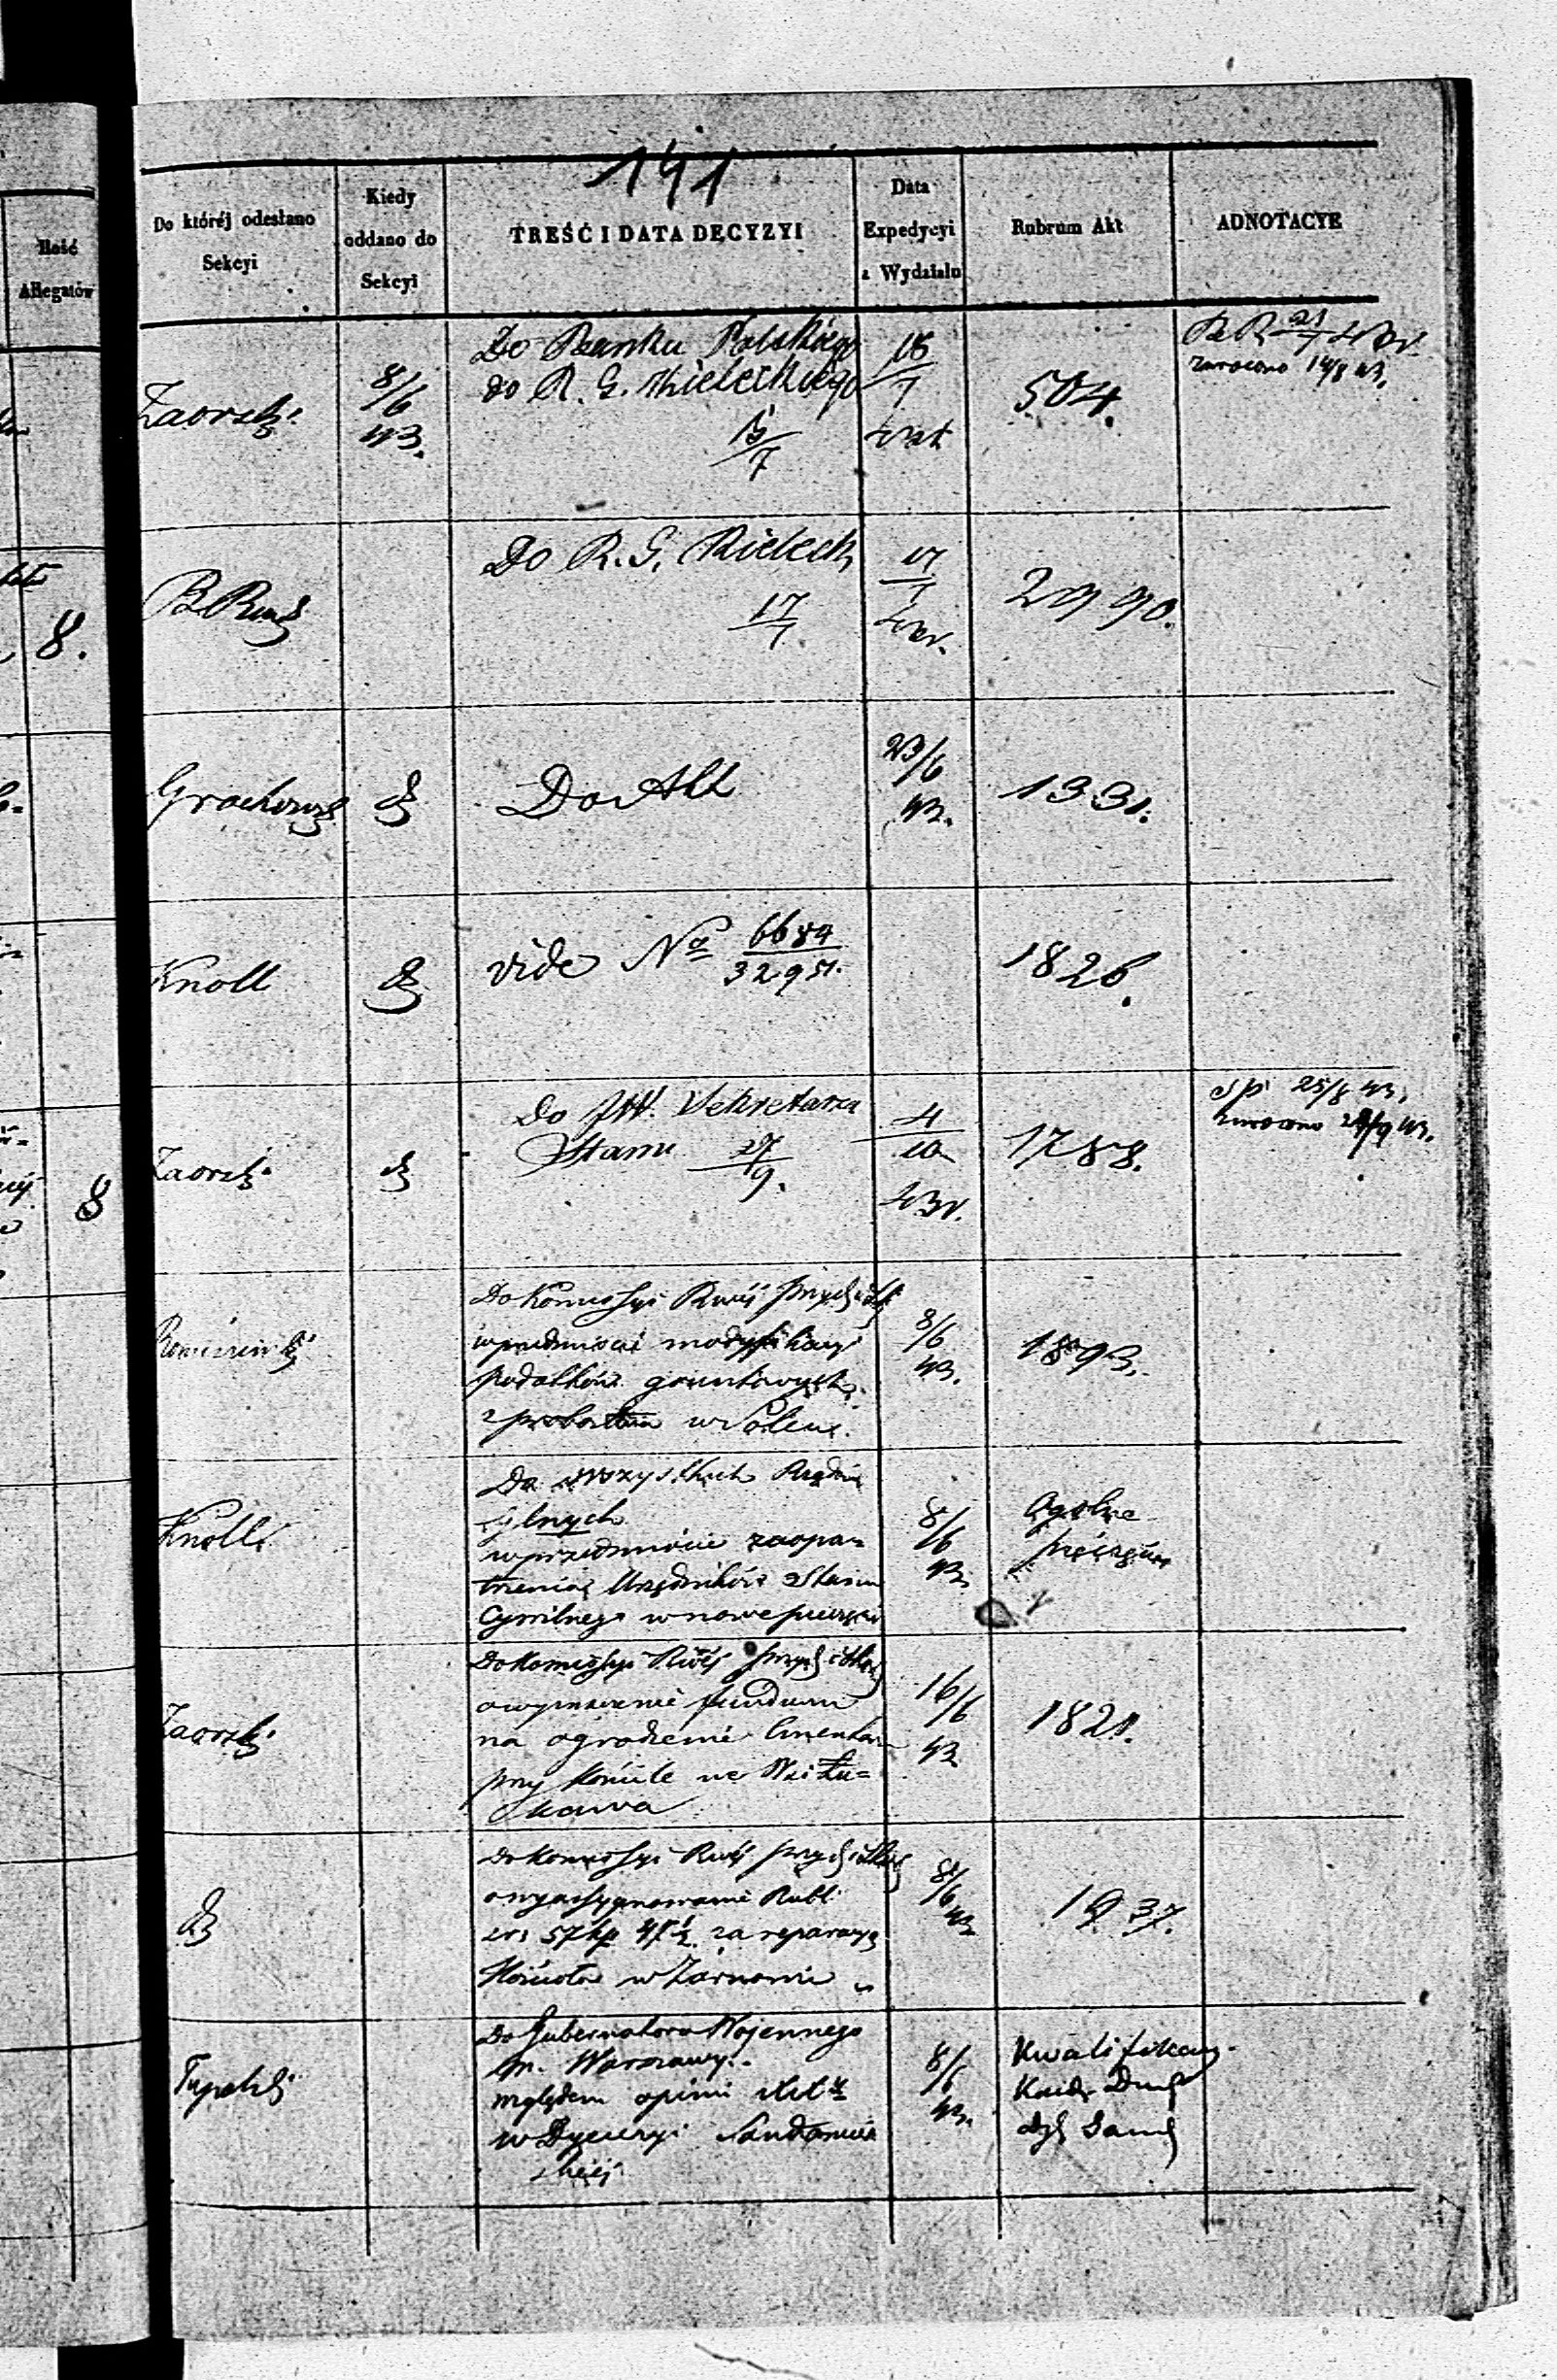 141
Ilość
Allegatów
Do któréj odesłano
Sekcyi
Kiedy
oddano do
Sekcyi
TREŚĆ I DATA DECYZYI
Data
Expedycyi
z Wydziału
Rubrum Akt
ADNOTACYE
Zaorski
8/6
43.
Do Banku Polskiego
do R. G. Kieleckiego
15/7
18/7
504.
21/7
zwrócono 14/8 43.
8.
Do R. G. Kieleck
17/7
17/7
2990.
Grochowsk
Do Akt
23/6
43.
1331.
Knoll
vide No 6684
32951.
1826.
8
Zaorski
Do JW. Sekretarza
Stanu 27/9.
4/10
1788.
25/8 43.
zwrocono 28/9 43.
Do Kommissyi Rwéj Przych i Sk
w przedmiocie modyfikacyi
podatków gruntowych
z probostwa w Solcu.
8/6
43.
1893.
Knoll
Do wszystkich Rządów
Gjlnych
w przedmiocie zaopa=
trzenia Urzędników Stanu
Cywilnego w nowe pieczęci
8/6
43.
Ogolne
Zaorski
Do Kommissyi Rwéj Przych i Skar
o wyznaczenie funduszu
na ogrodzenie Cmentarza
przy Kościele we Wsi
16/6
43
1821.
Do Kommissyi Rwéj Przych i Skar
o wyassygnowanie Rubli
srs 57 kp 41½ za reparacyą
Kościoła w Żarnowie
8/6
43
1937.
Do Gubernatora Wojennego
m. Warszawy.
względem opinii
w Dyecezyi Sandomier
skiéj
8/6
43.
Kwalifikacy
Duch
Dyec Sand